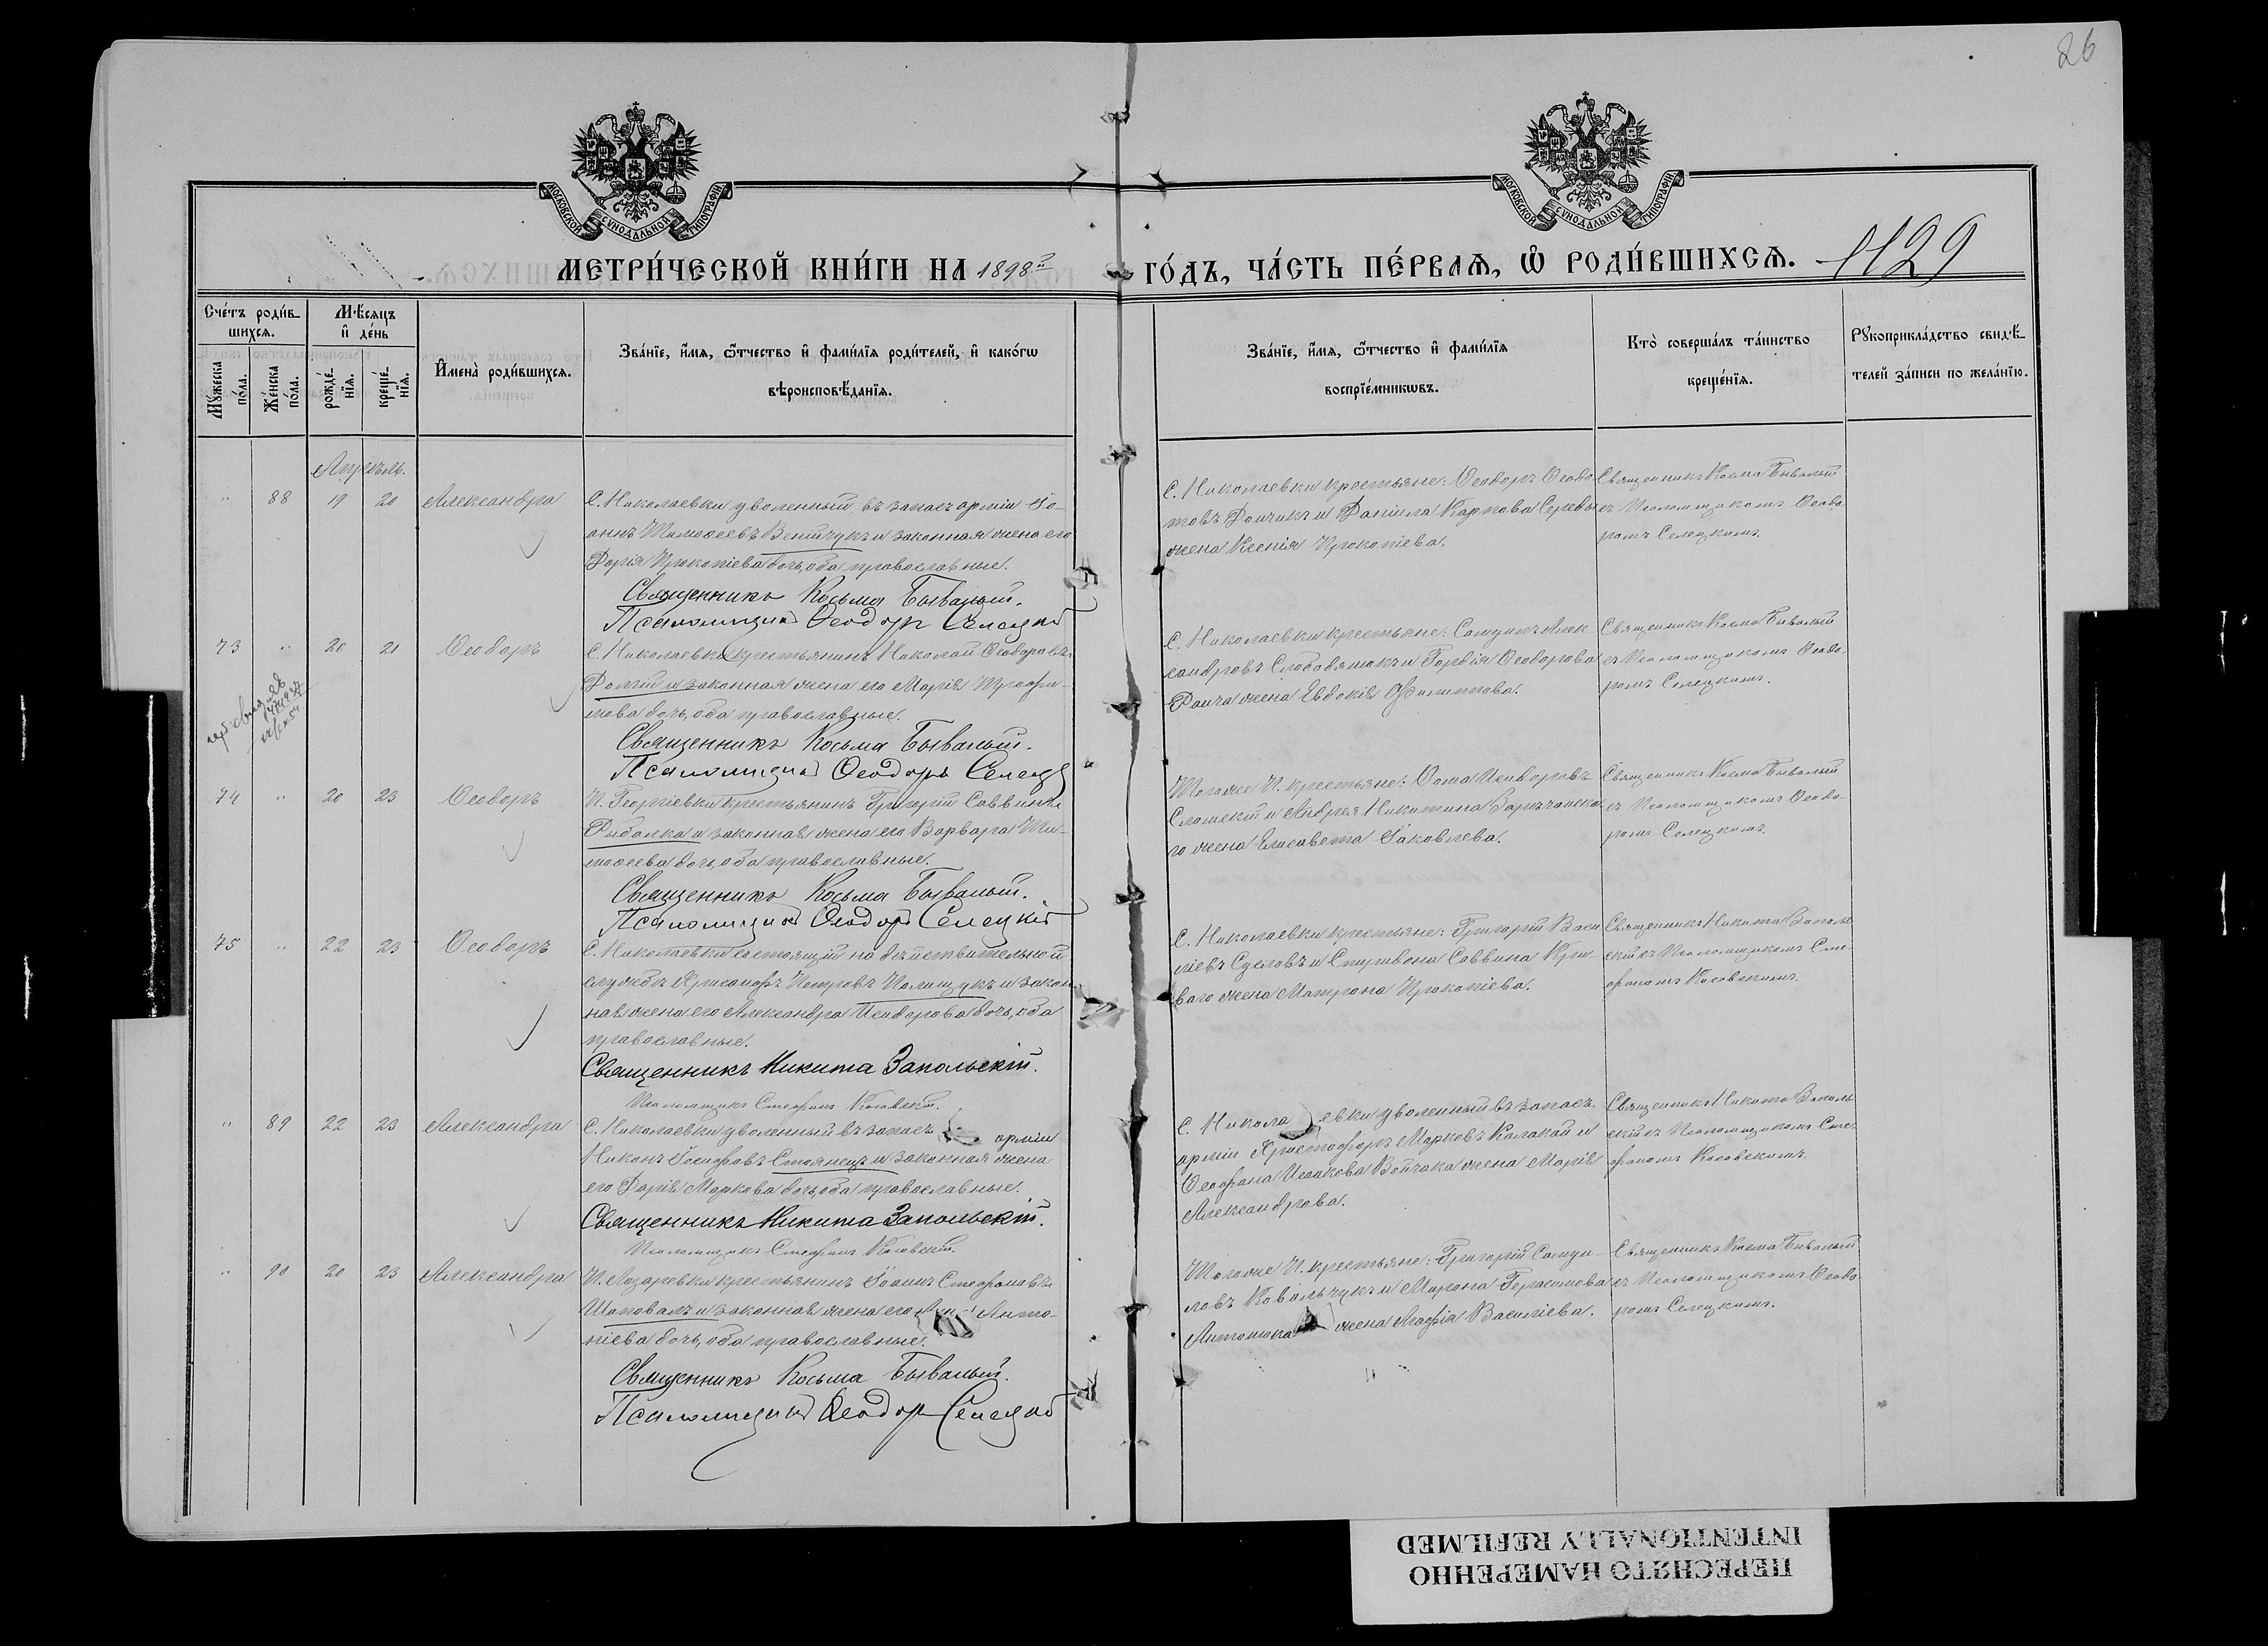 26
МОСКОВСКОЙ СѴНОДАЛЬНОЙ ТИПОГРАФІИ
МОСКОВСКОЙ СѴНОДАЛЬНОЙ ТИПОГРАФІИ
МЕТРИ́ЧЕСКОЙ КНИ́ГИ НА 1898й
ГО́ДЪ, ЧА́СТЬ ПЕ́РВАѦ, Ѡ РОДИ́ВШИХСѦ. 1129
Сче́тъ роди́в-
шихсѧ.
Мꙋ́жеска по́ла.
Же́нска по́ла.
Мѣ́сѧцъ
и҆ де́нь
рожде́-
нїѧ.
креще́-
нїѧ.
И҆мена̀ роди́вшихсѧ.
Зва́нїе, и҆́мѧ, ѻ҆́тчество и҆ фами́лїѧ роди́телей, и҆ како́гѡ
вѣроисповѣ́данїѧ.
Зва́нїе, и҆́мѧ, ѻ҆́тчество и҆ фами́лїѧ
воспрїе́мникѡвъ.
Кто̀ соверша́лъ та́инство
креще́нїѧ.
Рꙋкоприкла́дство свидѣ́-
телей за́писи по жела́нїю.
Апрѣль.
" 88 19 20 Александра
С. Николаевки уволенный въ запасъ арміи Іо-
аннъ Тимоѳеевъ Венгичукъ и законная жена его
Дарія Прокопіева дочь, оба православные.
Священникъ Косьма Бывалый.
Псаломщикъ Ѳеодоръ Селецкій
С. Николаевки крестьяне: Ѳеодоръ Ѳеодо-
товъ Дончикъ и Даніила Карпова
жена Ксенія Прокопіева.
Священникъ Косма Бывалый
съ Псаломщикомъ Ѳеодо-
ромъ Селецкимъ.
73 " 20 21 Ѳеодоръ
С. Николаевки крестьянинъ Николай Ѳеодоровъ
Долгій и законная жена его Марія Трофи-
мова дочь, оба православные.
Священникъ Косьма Бывалый.
Псаломщикъ Ѳеодоръ Селецкій
С. Николаевки крестьяне: Самуилъ Алек-
сандровъ Слободянюкъ и Гордія Ѳеодорова
жена Евдокія Филиппова.
Священникъ Косма Бывалый
съ Псаломщикомъ Ѳеодо-
ромъ Селецкимъ.
74 " 20 23 Ѳеодоръ
П. Георгіевки крестьянинъ Григорій Саввинъ
Рыбалка и законная жена его Варвара Ти-
моѳеева дочь, оба православные.
Священникъ Косьма Бывалый.
Псаломщикъ Ѳеодоръ Селецкій
Тогоже П. крестьяне: Ѳома Исидоровъ
Сломскій и Андрея Никитина
го жена Елисавета Іаковлева.
Священникъ Косма Бывалый
съ Псаломщикомъ Ѳеодо-
ромъ Селецкимъ.
75 " 22 23 Ѳеодоръ
С. Николаевки состоящій на дѣйствительной
службѣ Хрисанфъ Петровъ Полищукъ и закон-
ная жена его Александра Исидорова дочь, оба
православные.
Священникъ Никита Запольскій.
Псаломщикъ Стефанъ Косовскій.
С. Николаевки крестьяне: Григорій Васи-
ліевъ Сусловъ и Спиридона Саввина Кри-
ваго жена Матрона Прокопіева.
Священникъ Никита Заполь-
скій съ Псаломщикомъ Сте-
фаномъ Косовскимъ.
" 89 22 23 Александра
С. Николаевки уволенный въ запасъ арміи
Никонъ Іосифовъ Стоянецъ и законная жена
его Дарія Маркова дочь, оба православные.
Священникъ Никита Запольскій.
Псаломщикъ Стефанъ Косовскій.
С. Николаевки уволенный въ запасъ
арміи Христофоръ Марковъ Калакай и
Ѳеофана Исаакова Войчака жена Марія
Александрова.
Священникъ Никита Заполь-
скій съ Псаломщикомъ Сте-
фаномъ Косовскимъ.
" 90 20 23 Александра
П. Лазаревки крестьянинъ Іоаннъ Стефановъ
Шаповалъ и законная жена его Анто-
ніева дочь, оба православные.
Священникъ Косьма Бывалый.
Псаломщикъ Ѳеодоръ Селецкій
Тогоже П. крестьяне: Григорій Самуи-
ловъ Ковальчукъ и Мирона Герасимова
Антонюка жена Агафія Василіева.
Священникъ Косма Бывалый
съ Псаломщикомъ Ѳеодо-
ромъ Селецкимъ.
ПЕРЕСНЯТО НАМЕРЕННО
INTENTIONALLY REFILMED